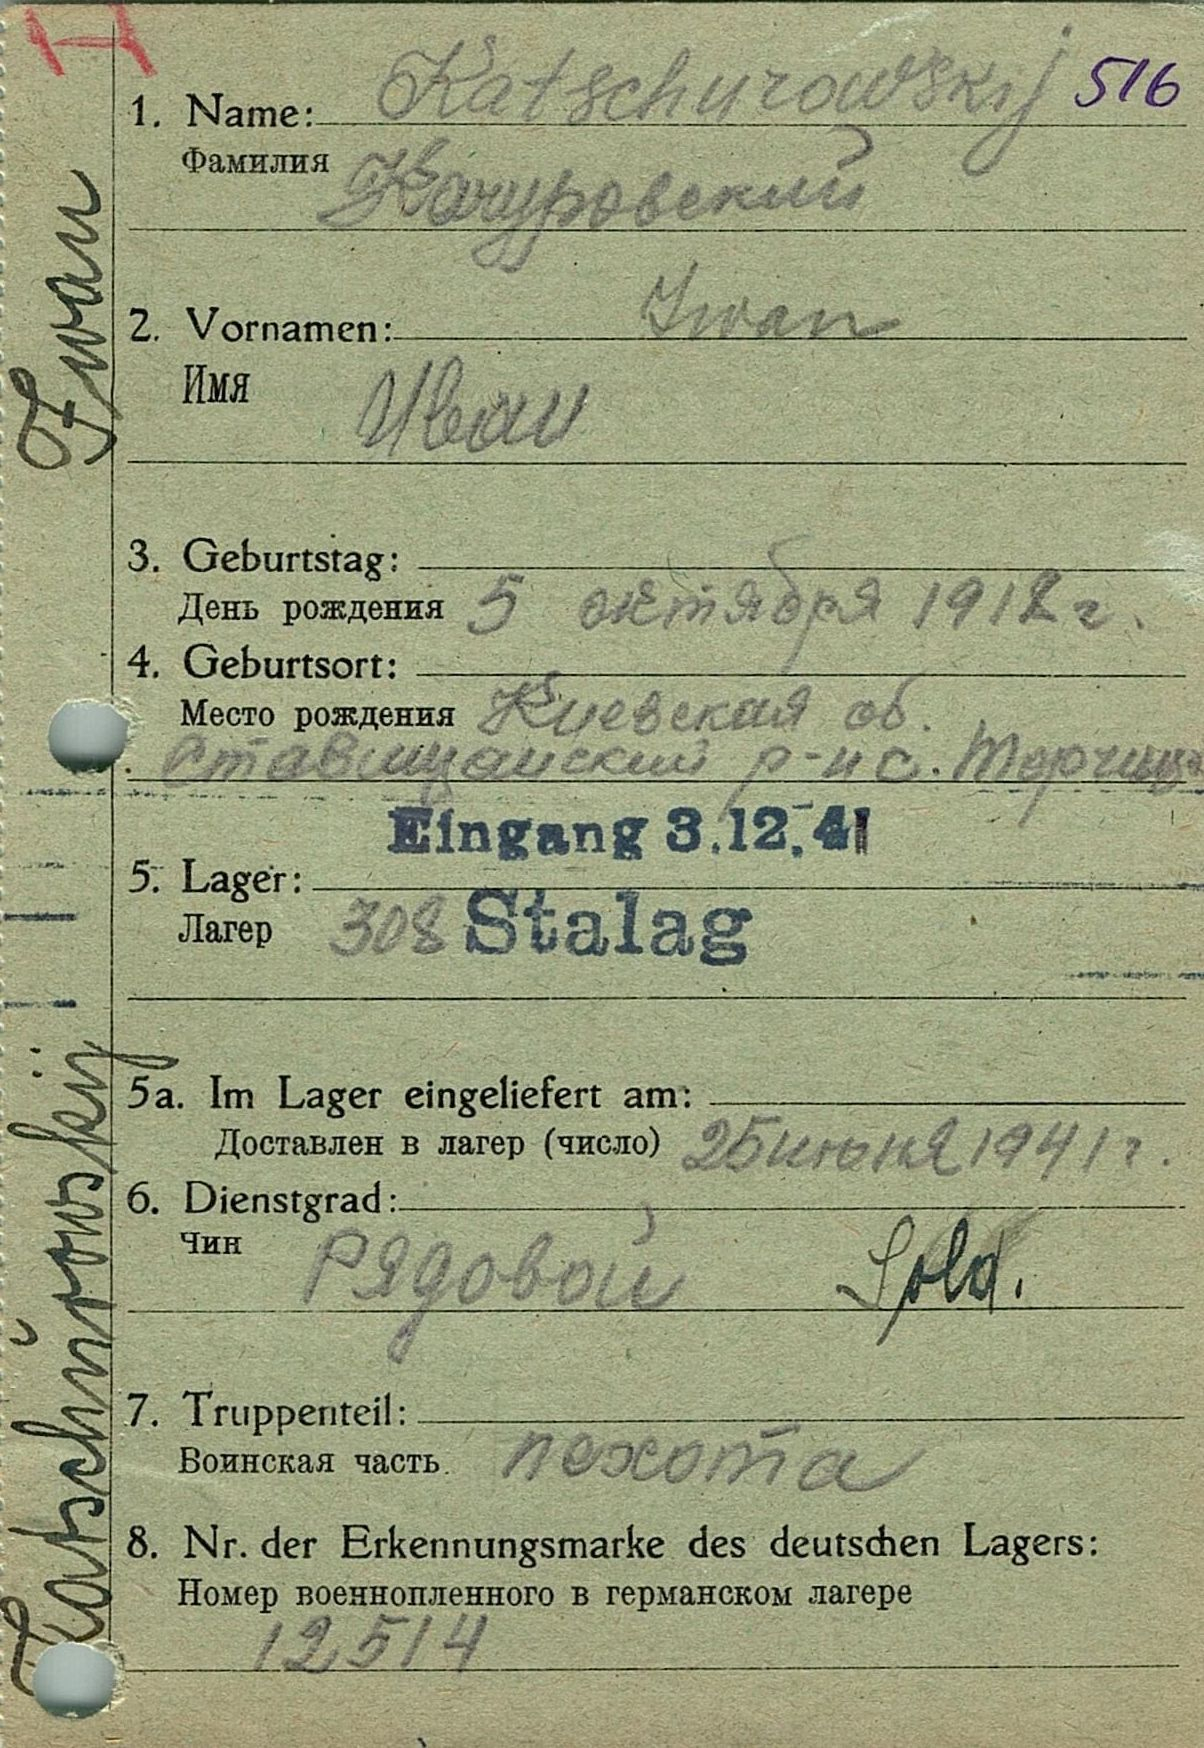 Katschurowskij 516
1. Name:
Фамилия Качуровский
2. Vornamen: Iwan
Имя Иван
3. Geburtstag:
День рождения 5 октября 1912 г.
4. Geburtsort:
Место рождения Киевская об.
Ставищанский р-н с. Торчица
Eingang 3.12.41
5. Lager:
Лагер 308 Stalag
5a. Im Lager eingeliefert am:
Доставлен в лагер (число) 25 июня 1941 г.
6. Dienstgrad:
Чин Рядовой Sold.
7. Truppenteil:
Воинская часть пехота
8. Nr. der Erkennungsmarke des deutschen Lagers:
Номер военнопленного в германском лагере
12514
Katschurowskij Iwan